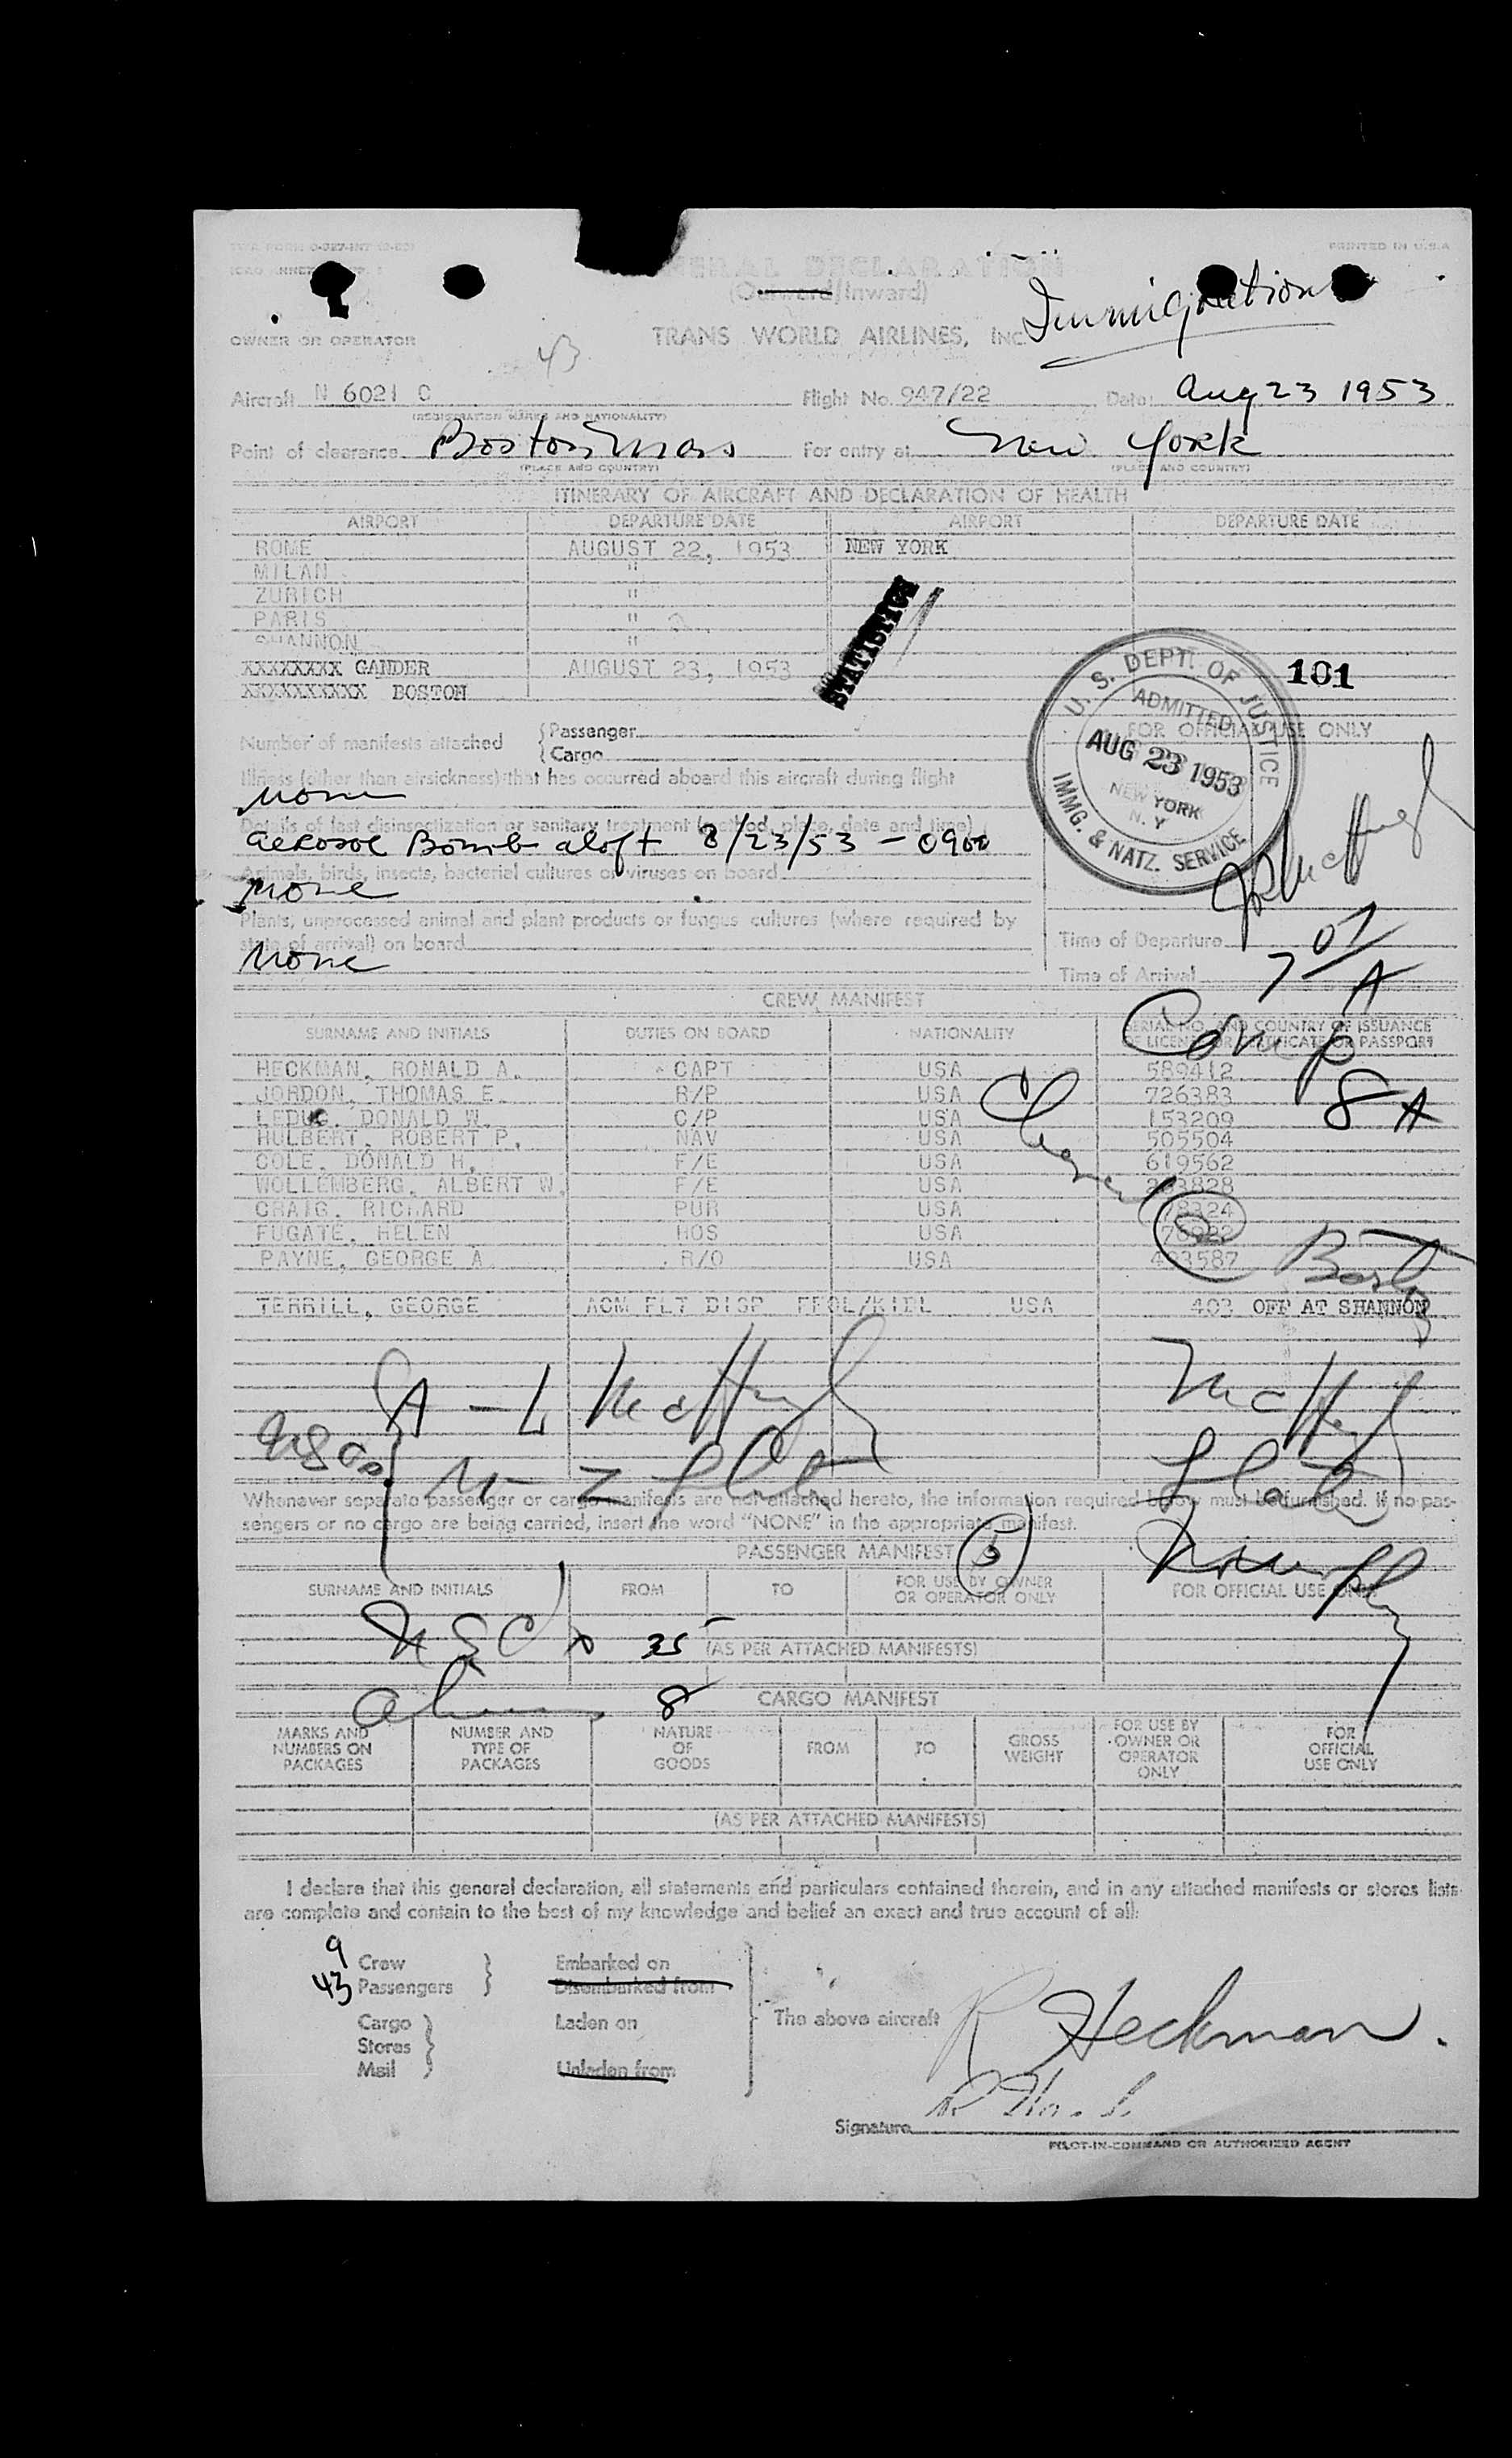 PRINTED IN U.S.A.
GENERAL DECLARATION
(Outward/Inward)
Immigration
OWNER OR OPERATOR
TRANS WORLD AIRLINES, INC.
43
Aircraft N 6021 C Flight No. 947/22 Date: Aug 23 1953
(REGISTRATION MARKS AND NATIONALITY)
Point of clearance Boston Mass For entry at New York
(PLACE AND COUNTRY) (PLACE AND COUNTRY)
ITINERARY OF AIRCRAFT AND DECLARATION OF HEALTH
AIRPORT DEPARTURE DATE AIRPORT DEPARTURE DATE
ROME AUGUST 22, 1953 NEW YORK
MILAN "
ZURICH "
PARIS "
SHANNON "
XXXXXXXX GANDER AUGUST 23, 1953
XXXXXXXXXX BOSTON
101
U. S. DEPT. OF JUSTICE
ADMITTED
AUG 23 1953
NEW YORK
N. Y.
IMMG. & NATZ. SERVICE
Number of manifests attached
Passenger
Cargo
FOR OFFICIAL USE ONLY
Illness (other than airsickness) that has occurred aboard this aircraft during flight
None
Details of last disinsectization or sanitary treatment (method, place, date and time)
Aerosol Bomb aloft 8/23/53 - 0900
Animals, birds, insects, bacterial cultures or viruses on board
None
Plants, unprocessed animal and plant products or fungus cultures (where required by
state of arrival) on board
None
Time of Departure
Time of Arrival 7 07 A
CREW MANIFEST
SURNAME AND INITIALS DUTIES ON BOARD NATIONALITY SERIAL NO. AND COUNTRY OF ISSUANCE
OF LICENSE OR CERTIFICATE OR PASSPORT
Comp
8 A
HECKMAN, RONALD A. CAPT USA 589412
JORDON, THOMAS E. R/P USA 726383
LEDUC, DONALD W. C/P USA 153209
HULBERT, ROBERT P. NAV USA 505504
COLE, DONALD H. F/E USA 619562
WOLLEMBERG, ALBERT W. F/E USA
CRAIG, RICHARD PUR USA
FUGATE, HELEN HOS USA
PAYNE, GEORGE A. R/O USA
TERRILL, GEORGE ACM FLT DISP USA 403 OFF AT SHANNON
A - L McHugh McHugh
M - Z
Whenever separate passenger or cargo manifests are not attached hereto, the information required below must be furnished. If no pas-
sengers or no cargo are being carried, insert the word "NONE" in the appropriate manifest.
Murphy
PASSENGER MANIFEST
SURNAME AND INITIALS FROM TO FOR USE BY OWNER
OR OPERATOR ONLY FOR OFFICIAL USE ONLY
35 (AS PER ATTACHED MANIFESTS)
8
CARGO MANIFEST
MARKS AND
NUMBERS ON
PACKAGES
NUMBER AND
TYPE OF
PACKAGES
NATURE
OF
GOODS
FROM
TO
GROSS
WEIGHT
FOR USE BY
OWNER OR
OPERATOR
ONLY
FOR
OFFICIAL
USE ONLY
(AS PER ATTACHED MANIFESTS)
I declare that this general declaration, all statements and particulars contained therein, and in any attached manifests or stores lists
are complete and contain to the best of my knowledge and belief an exact and true account of all:
9 Crew
43 Passengers
Embarked on
Disembarked from
Cargo
Stores
Mail
Laden on
Unladen from
The above aircraft
R Heckman
Signature
PILOT-IN-COMMAND OR AUTHORIZED AGENT